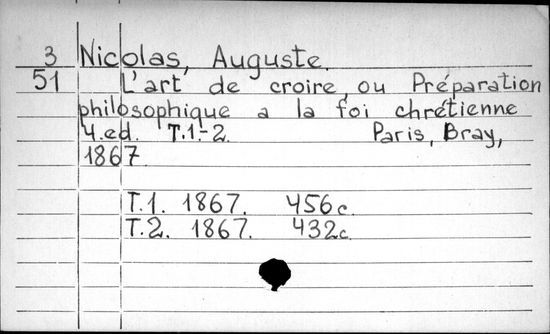 3 Nicolas, Auguste.
51 L'art de croire, ou Préparation
philosophique a la foi chrétienne
4.ed. T.1.-2. Paris, Bray,
1867.
T.1. 1867. 456c.
T.2. 1867. 432c.